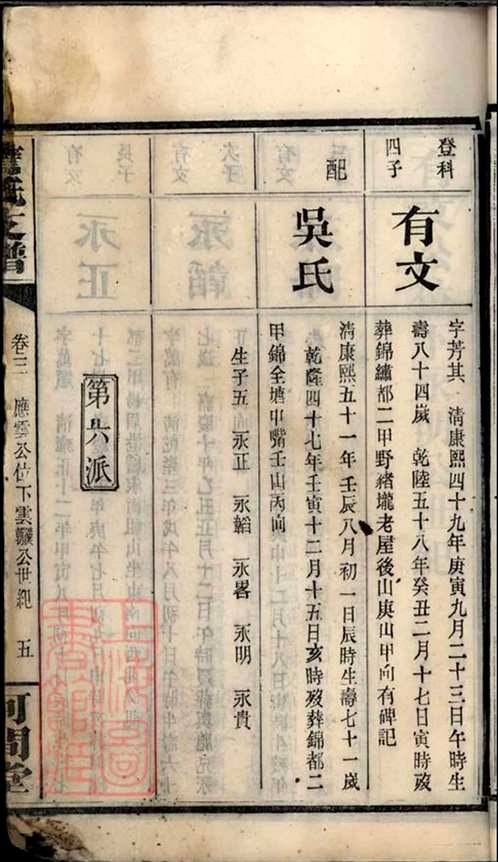 登科
四子
有文
字芳其 清康熙四十九年庚寅九月二十三日午時生
壽八十四歲 乾隆五十八年癸丑二月十七日寅時歿
葬錦繡都二甲野豬壠老屋後山庚山甲向有碑記
配
吳氏
清康熙五十一年壬辰八月初一日辰時生壽七十一歲
乾隆四十七年壬寅十二月十五日亥時歿葬錦都二
甲錦全塘中嘴壬山丙向
生子五 永正 永韜 永畧 永明 永貴
第六派
氏支譜
卷三 應雲公位下雲驥公世紀 五
河間堂